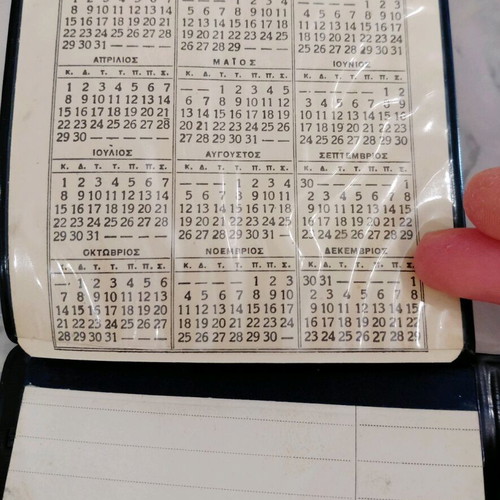 1 2 3 4 5 6 7
8 9 10 11 12 13 14
22 23 24 25 26 27 28
29 30 31 — — — —
5 6 7 8 9 10 11
12 13 14 15 16 17 18
19 20 21 22 23 24 25
26 27 28 29 — — —
— — — — 1 2 3
4 5 6 7 8 9 10
11 12 13 14 15 16 17
18 19 20 21 22 23 24
25 26 27 28 29 30 31
ΑΠΡΙΛΙΟΣ
Κ. Δ. Τ. Τ. Π. Π. Σ.
1 2 3 4 5 6 7
8 9 10 11 12 13 14
15 16 17 18 19 20 21
22 23 24 25 26 27 28
29 30 — — — — —
ΜΑΪΟΣ
Κ. Δ. Τ. Τ. Π. Π. Σ.
— — — 1 2 3 4 5
6 7 8 9 10 11 12
13 14 15 16 17 18 19
20 21 22 23 24 25 26
27 28 29 30 31 — —
ΙΟΥΝΙΟΣ
Κ. Δ. Τ. Τ. Π. Π. Σ.
— — — — — 1 2
3 4 5 6 7 8 9
10 11 12 13 14 15 16
17 18 19 20 21 22 23
24 25 26 27 28 29 30
ΙΟΥΛΙΟΣ
Κ. Δ. Τ. Τ. Π. Π. Σ.
1 2 3 4 5 6 7
8 9 10 11 12 13 14
15 16 17 18 19 20 21
22 23 24 25 26 27 28
29 30 31 — — — —
ΑΥΓΟΥΣΤΟΣ
Κ. Δ. Τ. Τ. Π. Π. Σ.
— — — 1 2 3 4
5 6 7 8 9 10 11
12 13 14 15 16 17 18
19 20 21 22 23 24 25
26 27 28 29 30 31 —
ΣΕΠΤΕΜΒΡΙΟΣ
Κ. Δ. Τ. Τ. Π. Π. Σ.
30 — — — — — 1
2 3 4 5 6 7 8
9 10 11 12 13 14 15
16 17 18 19 20 21 22
23 24 25 26 27 28 29
ΟΚΤΩΒΡΙΟΣ
Κ. Δ. Τ. Τ. Π. Π. Σ.
— 1 2 3 4 5 6
7 8 9 10 11 12 13
14 15 16 17 18 19 20
21 22 23 24 25 26 27
28 29 30 31 — — —
ΝΟΕΜΒΡΙΟΣ
Κ. Δ. Τ. Τ. Π. Π. Σ.
— — — — 1 2 3
4 5 6 7 8 9 10
11 12 13 14 15 16 17
18 19 20 21 22 23 24
25 26 27 28 29 30 —
ΔΕΚΕΜΒΡΙΟΣ
Κ. Δ. Τ. Τ. Π. Π. Σ.
30 31 — — — — 1
2 3 4 5 6 7 8
9 10 11 12 13 14 15
16 17 18 19 20 21 22
23 24 25 26 27 28 29